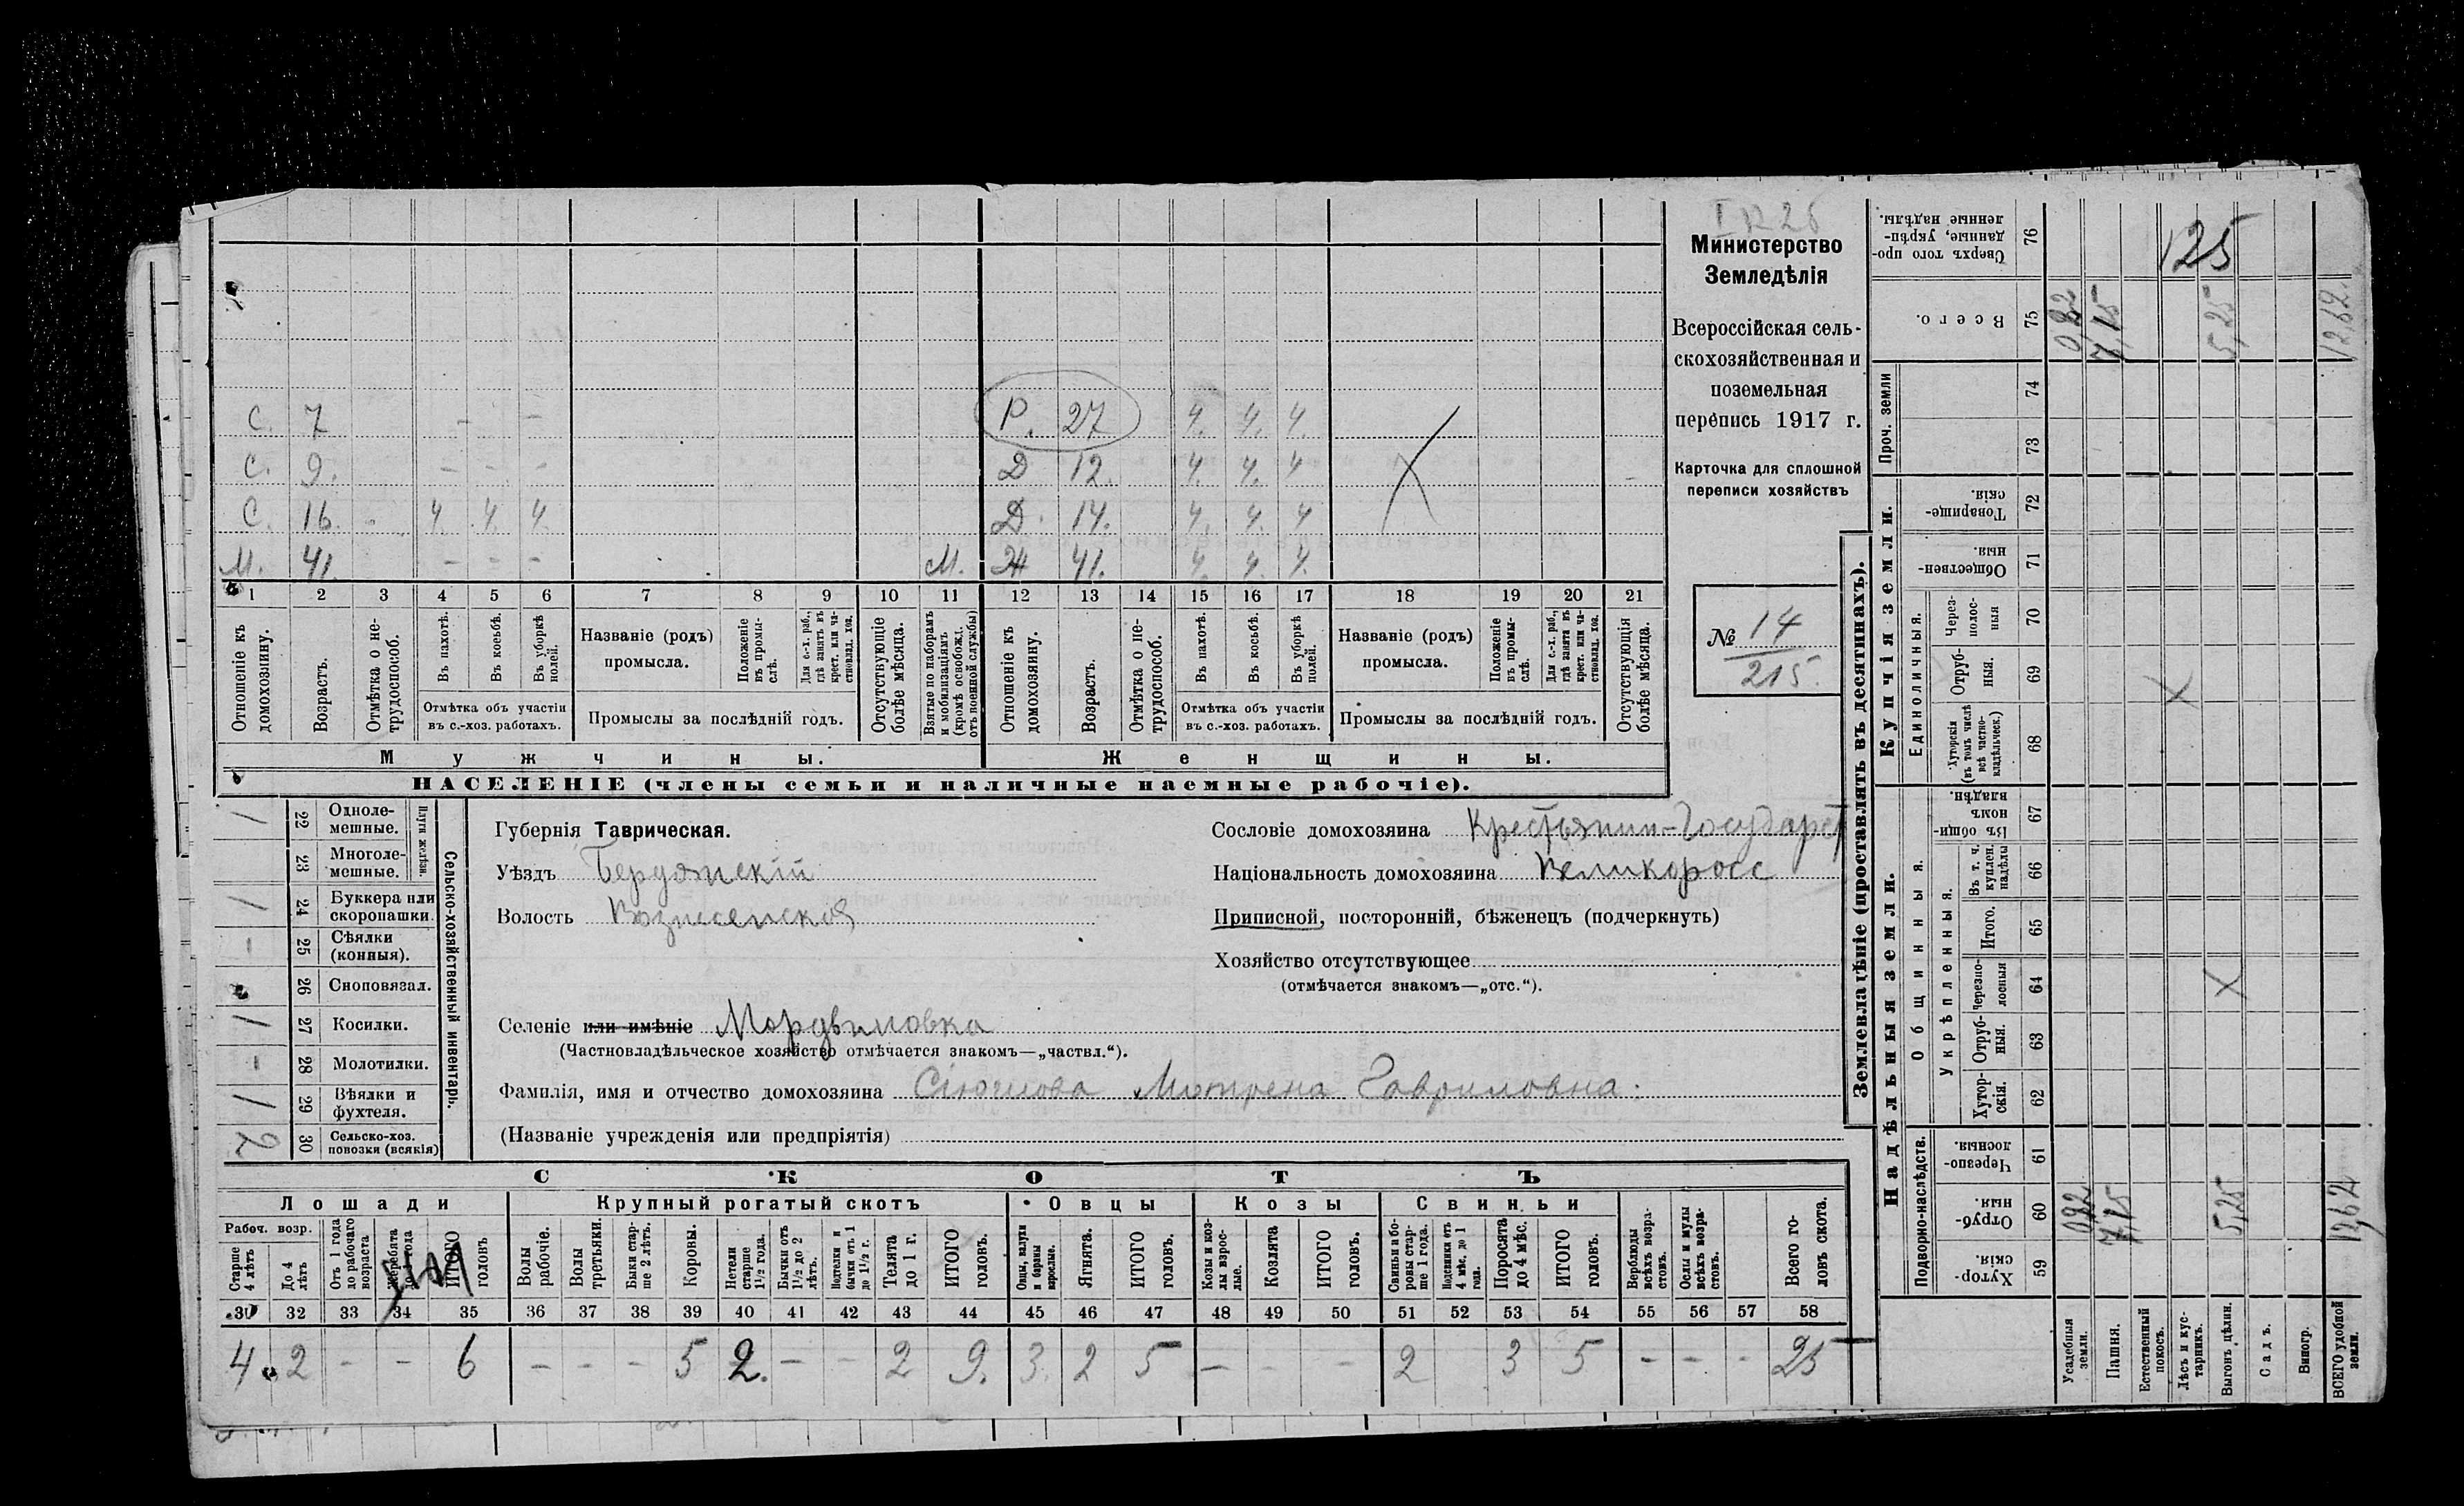 I R 26
Министерство
Земледѣлія
Всероссійская сель-
скохозяйственная и
поземельная
перепись 1917 г.
Карточка для сплошной
переписи хозяйствъ
№ 14
215.
С. 7 - -
С. 9. - - -
С. 16. 4. 4. 4.
М. 41. - - - М.
Р. 27 4. 4. 4.
Д 12. 4. 4. 4
Д. 14. 4. 4. 4
Ж 41. 4. 4. 4.
1 2 3 4 5 6 7 8 9 10 11 12 13 14 15 16 17 18 19 20 21
Отношеніе къ домохозяину.
Возрастъ.
Отмѣтка о не-трудоспособ.
Въ пахотѣ.
Въ косьбѣ.
Въ уборкѣ полей.
Отмѣтка объ участіи
въ с.-хоз. работахъ.
Названіе (родъ)
промысла.
Положеніе въ промы-слѣ.
Для с.-х. раб., гдѣ занятъ въ крест. или ча-стновлад. хоз.
Промыслы за послѣдній годъ.
Отсутствующіе болѣе мѣсяца.
Взятые по наборамъ и мобилизаціямъ (кромѣ освобожд. отъ военной службы)
Отношеніе къ домохозяину.
Возрастъ.
Отмѣтка о не-трудоспособ.
Въ пахотѣ.
Въ косьбѣ.
Въ уборкѣ полей.
Отмѣтка объ участіи
въ с.-хоз. работахъ.
Названіе (родъ)
промысла.
Положеніе въ промы-слѣ.
Для с.-х. раб., гдѣ занята въ крест. или ча-стновлад. хоз.
Промыслы за послѣдній годъ.
Отсутствующія болѣе мѣсяца.
Мужчины. Женщины.
НАСЕЛЕНІЕ (члены семьи и наличные наемные рабочіе).
Сельско-хозяйственный инвентарь.
Плуги желѣзн.
1 22 Одноле-мешные.
23 Многоле-мешные.
1 24 Буккера или скоропашки.
- 25 Сѣялки (конныя).
26 Сноповязал.
1 27 Косилки.
- 28 Молотилки.
1 29 Вѣялки и фухтеля.
2 30 Сельско-хоз. повозки (всякія)
Губернія Таврическая.
Уѣздъ Бердянскій
Волость Вознесенская
Сословіе домохозяина Крестьянин-Государст
Національность домохозяина Великоросс
Приписной, посторонній, бѣженецъ (подчеркнуть)
Хозяйство отсутствующее
(отмѣчается знакомъ—„отс.“).
Селеніе или имѣніе Мордвиновка
(Частновладѣльческое хозяйство отмѣчается знакомъ—„частвл.“).
Фамилія, имя и отчество домохозяина Матрена Гавриловна.
(Названіе учрежденія или предпріятія)
СКОТЪ
Лошади Крупный рогатый скотъ Овцы Козы Свиньи
Рабоч. возр.
Старше 4 лѣтъ
До 4 лѣтъ
Отъ 1 года до рабочаго возраста
Жеребята до 1 года
ИТОГО головъ
Волы рабочіе.
Волы третьяки.
Быки стар-ше 2 лѣтъ.
Коровы.
Нетели старше 1½ года.
Бычки отъ 1½ до 2 лѣтъ.
Подтелки и бычки отъ 1 до 1½ г.
Телята до 1 г.
ИТОГО головъ.
Овцы, валухи и бараны взрослые.
Ягнята.
ИТОГО головъ.
Козы и коз-лы взрос-лые.
Козлята
ИТОГО головъ.
Свиньи и бо-ровы стар-ше 1 года.
Подсвинки отъ 4 мѣс. до 1 года.
Поросята до 4 мѣс.
ИТОГО головъ.
Верблюды всѣхъ возра-стовъ.
Ослы и мулы всѣхъ возра-стовъ.
Всего го-ловъ скота.
32 33 34 35 36 37 38 39 40 41 42 43 44 45 46 47 48 49 50 51 52 53 54 55 56 57 58
4 2 - - 6 - - - 5 2. - - 2 9. 3. 2 5 - - - 2 3 5 - - - 25
Землевладѣніе (проставлять въ десятинахъ).
Купчія земли.
Надѣльныя земли.
Проч. земли
Единоличныя.
Общинныя.
Укрѣпленныя.
Подворно-наслѣдств.
76 Сверхъ того про-данные, укрѣп-ленные надѣлы. 125
75 Всего. 0,22 7,15 5,25 12,62.
74
73
72 Товарище-скія.
71 Обществен-ныя.
70 Через-полос-ныя
69 Отруб-ныя.
68 Хуторскія (въ томъ числѣ всѣ частно-владѣльческ.)
67 Въ общин-номъ владѣн.
66 Въ т. ч. куплен. надѣлы
65 Итого.
64 Черезпо-лосныя
63 Отруб-ныя.
62 Хутор-скія.
61 Черезпо-лосныя.
60 Отруб-ныя. 0,22 7,15 5,25 12,62
59 Хутор-скія.
Усадебныя земли.
Пашня.
Естественный покосъ.
Лѣсъ и кус-тарникъ.
Выгонъ, цѣлин.
Садъ.
Виногр.
ВСЕГО удобной земли.